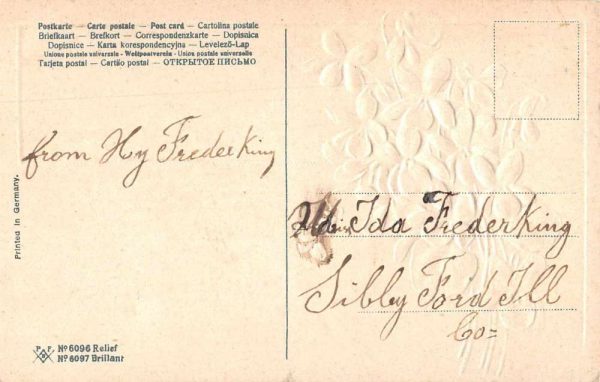 Postkarte — Carte postale — Post card — Cartolina postale
Briefkaart — Brefkort — Correspondenzkarte — Dopisnica
Dopisnice — Karta korespondencyjna — Levelező-Lap
Unione postale universale - Weltpostverein - Union postale universelle
Tarjeta postal — Cartão postal — ОТКРЫТОЕ ПИСЬМО
from Hy FrederKing
Printed in Germany.
Ida FrederKing
Sibby Ford Ill
Co=
P F B
No 6096 Relief
No 6097 Brillant